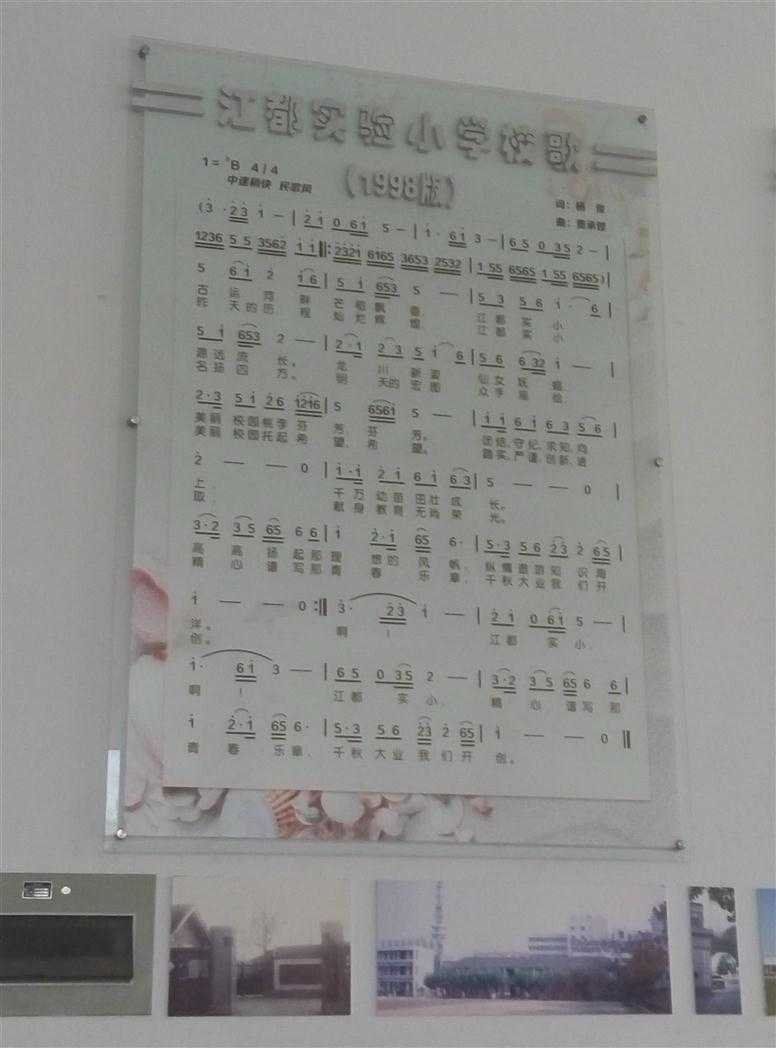 江都实验小学校歌
(1998版)
1=♭B 4/4
中速稍快 民歌风
词:杨 俊
曲:龚承铿
(3·23 1 — | 21 0 61 5 — | 1· 61 3 — | 65 0 35 2 — |
1236 55 3562 11 |: 2321 6165 3653 2532 | 1 55 6565 1 55 6565) |
5 61 2 16 | 51 653 5 — | 53 56 1· 6 |
古 运 河 畔 芒 稻 飘 香 江 都 实 小
昨 天 的 历 程 灿 烂 辉 煌 江 都 实 小
51 653 2 — | 2·1 23 51 6 | 56 632 1 — |
源 远 流 长。 龙 川 新 姿 仙 女
名 扬 四 方。 明 天 的 宏 图 众 手 描 绘
2·3 51 26 1216 | 5 6561 5 — | 11 61 63 56 |
美丽 校园桃李 芬 芳, 芬 芳。 团结、守纪、求知、向
美丽 校园托起 希 望, 希 望。 踏实、严谨、创新、进
2 — — 0 | 1·1 21 61 63 | 5 — — 0 |
上, 千 万 幼 苗 茁 壮 成 长。
取, 献 身 教 育 无 尚 荣 光。
3·2 35 65 66 | 1 2·1 65 6· | 5·3 56 23 2 65 |
高 高 扬 起 那 理 想 的 风 帆, 纵 情 遨 游 知 识 海
精 心 谱 写 那 青 春 乐 章, 千 秋 大 业 我 们 开
1 — — 0 :| 3· 23 1 — | 21 0 61 5 — |
洋。 啊 ! 江 都 实 小,
创。
1· 61 3 — | 65 0 35 2 — | 3·2 35 65 6 6 |
啊 ! 江 都 实 小, 精 心 谱 写 那
1 2·1 65 6· | 5·3 56 23 2 65 | 1 — — 0 ‖
青 春 乐 章, 千 秋 大 业 我 们 开 创。